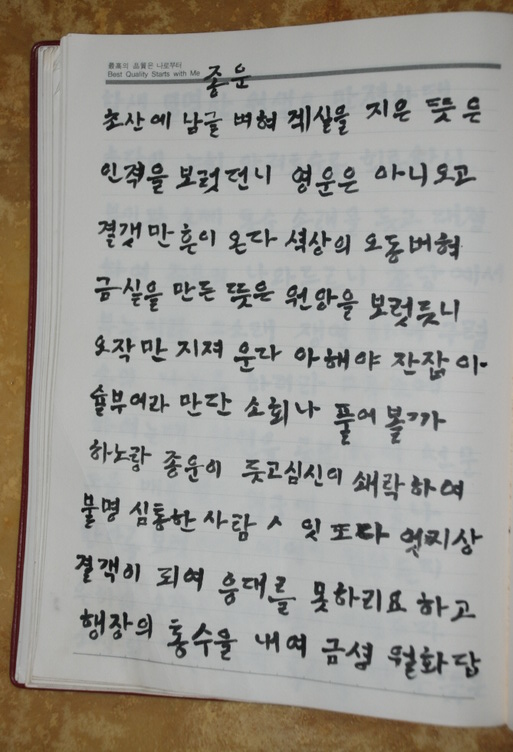 最高의 品質은 나로부터
Best Quality Starts with Me
종운
초산에 남글 벼혀 계실을 지은 뜻은
인적을 보렷던니 영운은 아니오고
결갯만 흔이 온다 석상의 오동버혀
금실을 만든 뜻은 원앙을 보렷듯니
오작만 지져 운다 아해야 잔잡아
술부어라 만단 소회나 풀어 볼가
하노랑 종운이 듯고심신이 쇄락하여
불명 심통한 사람 ㅅ 잇또다 엇지상
결객이 되여 응대를 못하리요 하고
행장의 통수을 내여 금셩 월화답